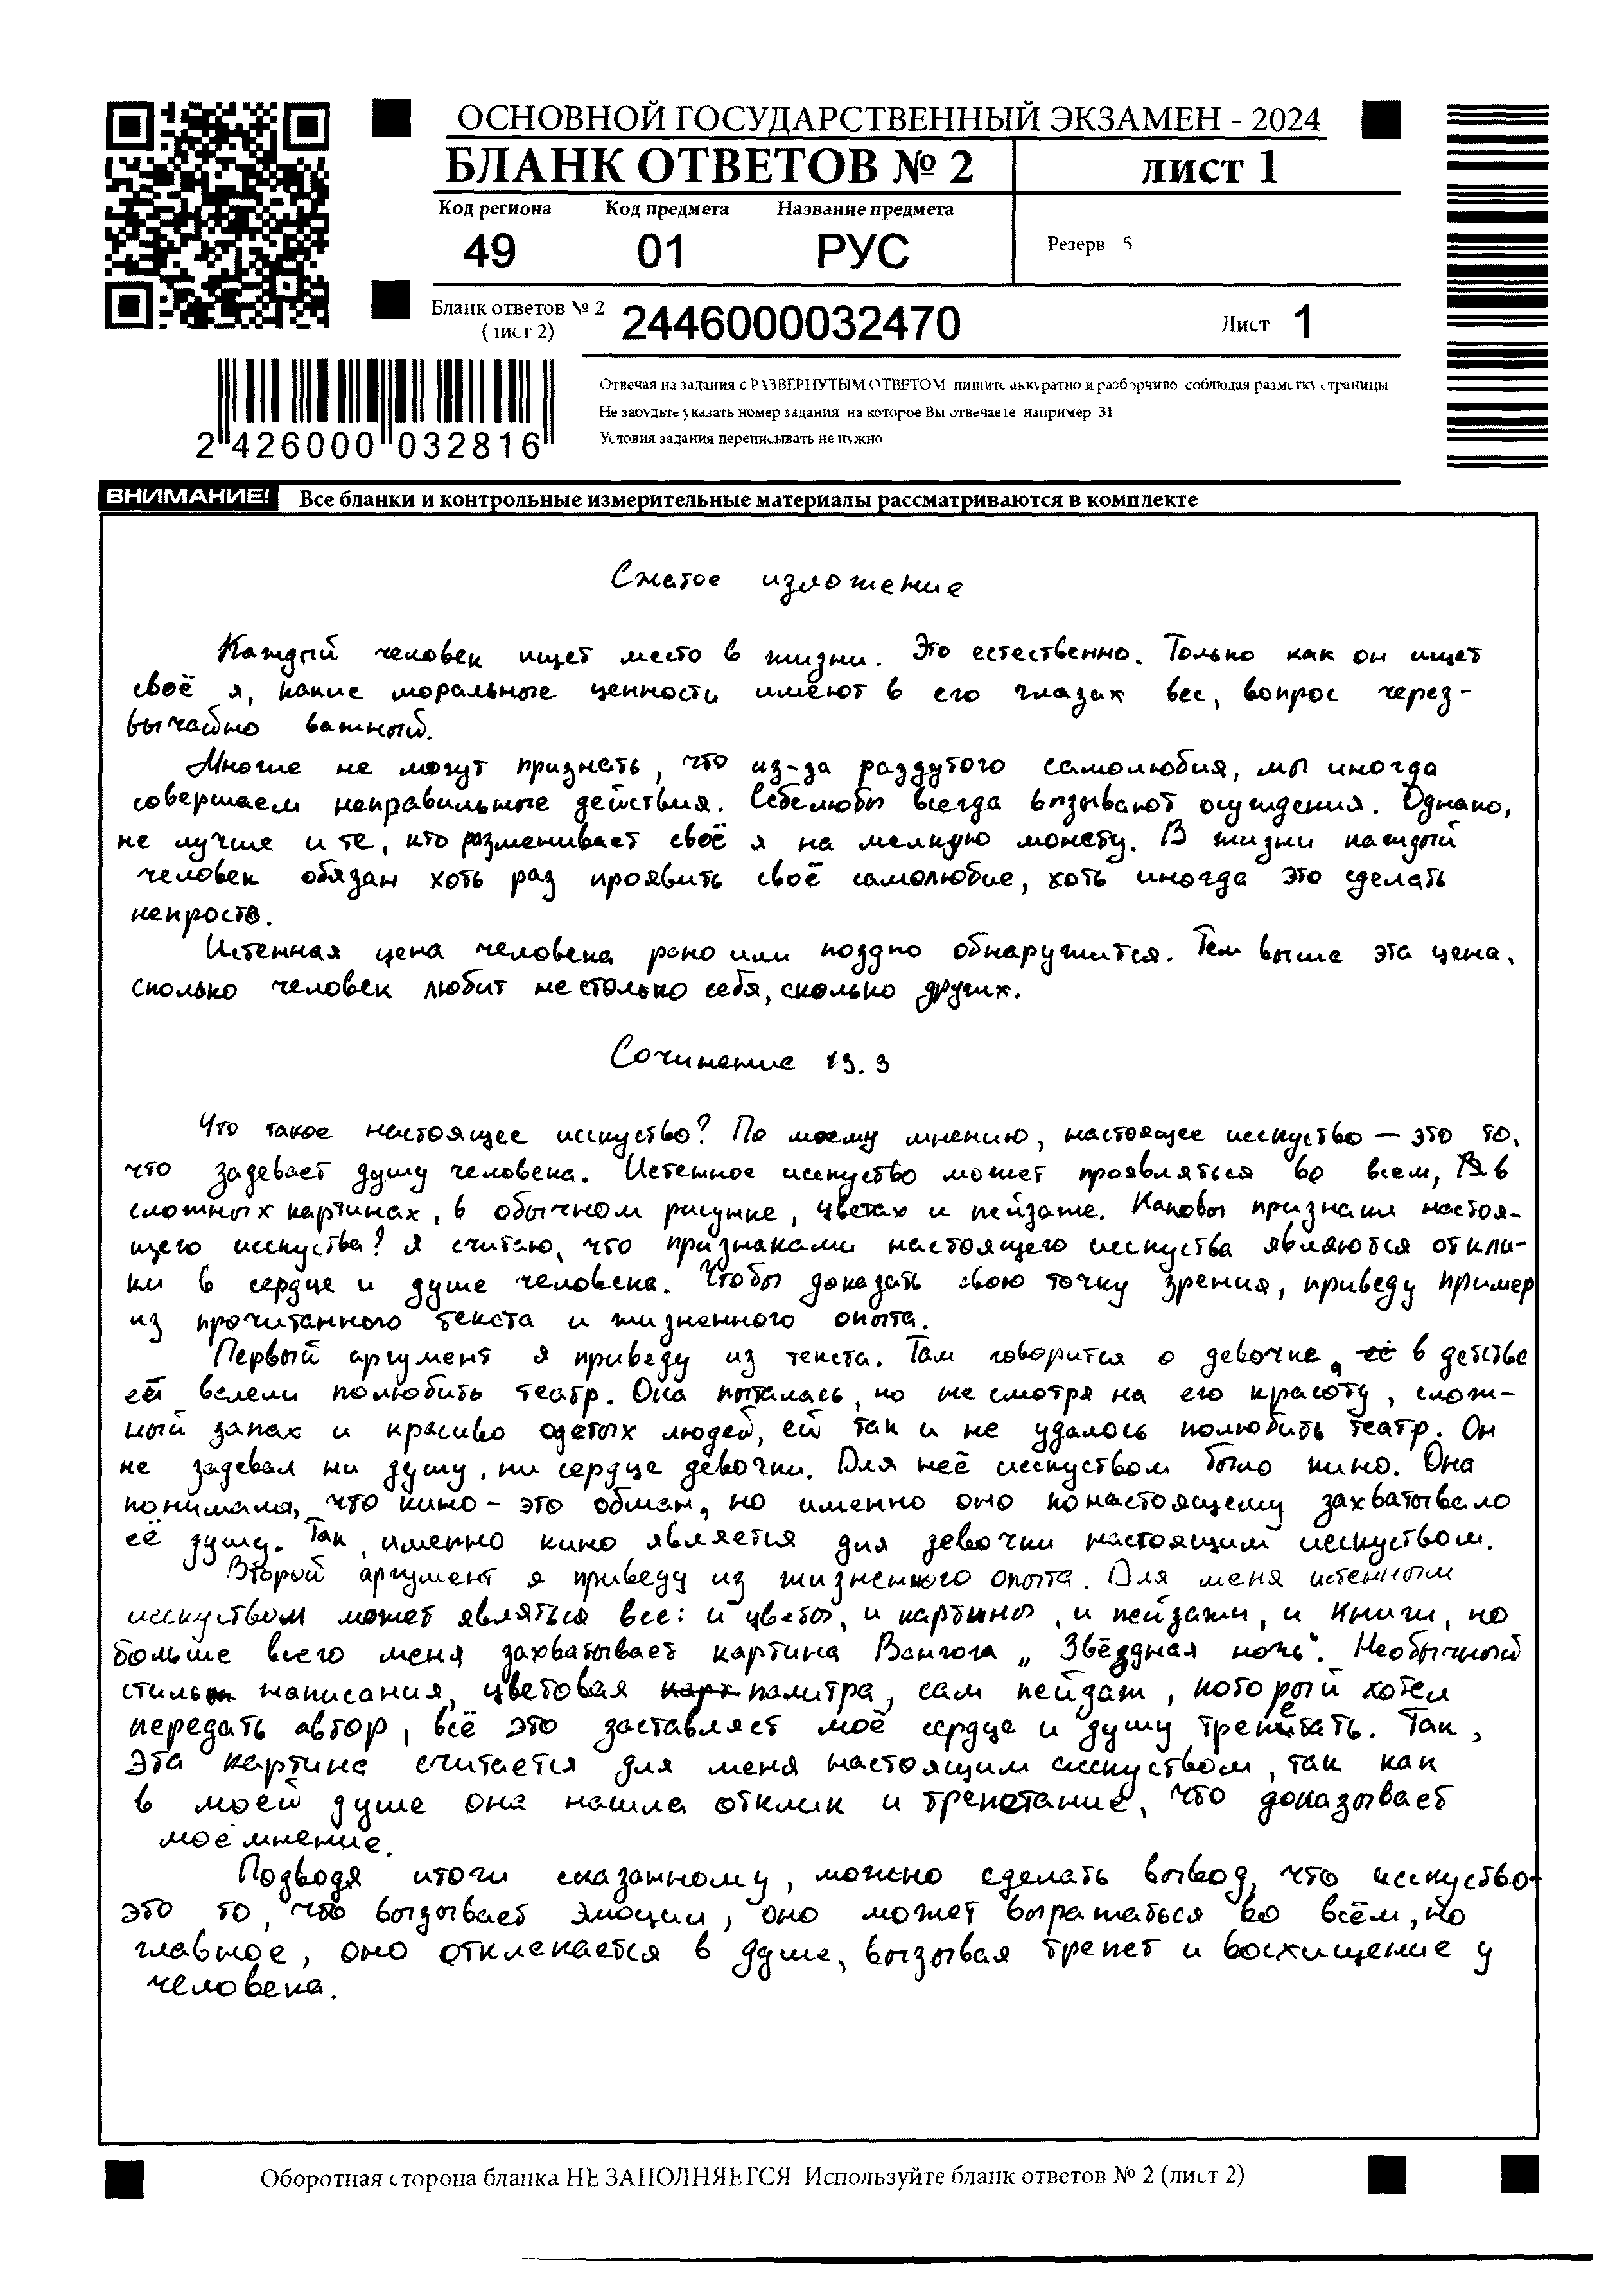 ОСНОВНОЙ ГОСУДАРСТВЕННЫЙ ЭКЗАМЕН - 2024
БЛАНК ОТВЕТОВ № 2
лист 1
Код региона Код предмета Название предмета
49 01 РУС
Резерв 5
Бланк ответов № 2
(лист 2)
2446000032470
Лист 1
Отвечая на задания с РАЗВЕРНУТЫМ ОТВЕТОМ пишите аккуратно и разборчиво соблюдая разметку страницы
Не забудьте указать номер задания на которое Вы отвечаете например 31
Условия задания переписывать не нужно
2 426000 032816
ВНИМАНИЕ! Все бланки и контрольные измерительные материалы рассматриваются в комплекте
Сжатое изложение
Каждый человек ищет место в жизни. Это естественно. Только как он ищет
своё я, какие моральные ценности имеют в его глазах вес, вопрос через-
вычайно важный.
Многие не могут признать, что из-за раздутого самолюбия, мы иногда
совершаем неправильные действия. Себелюбы всегда вызывают осуждения. Однако,
не лучше и те, кто разменивает своё я на мелкую монету. В жизни каждый
человек обязан хоть раз проявить своё самолюбие, хоть иногда это сделать
непросто.
Истенная цена человека рано или поздно обнаружится. Тем выше эта цена,
сколько человек любит не столько себя, сколько других.
Сочинение 13.3
Что такое настоящее исскуство? По моему мнению, настоящее исскуство — это то,
что задевает душу человека. Истенное исскуство может проявляться во всем, в
сложных картинах, в обычном рисунке, цветах и пейзаже. Каковы признаки настоя-
щего исскуства? Я считаю, что признаками настоящего исскуства являются откли-
ки в сердце и душе человека. Чтобы доказать свою точку зрения, приведу пример
из прочитанного текста и жизненного опыта.
Первый аргумент я приведу из текста. Там говорится о девочке, её в детстве
ей велели полюбить театр. Она пыталась, но не смотря на его красоту, слож-
ный запах и красиво одетых людей, ей так и не удалось полюбить театр. Он
не задевал ни душу, ни сердце девочки. Для неё исскуством было кино. Она
понимала, что кино - это обман, но именно оно понастоящему захватывало
её душу. Так, именно кино является для девочки настоящим исскуством.
Второй аргумент я приведу из жизненного опыта. Для меня истенным
исскуством может являться все: и цветы, и картины, и пейзажи, и книги, но
больше всего меня захватывает картина Вангога „Звёздная ночь". Необычный
стиль написания, цветовая карт палитра, сам пейзаж, который хотел
передать автор, всё это заставляет моё сердце и душу трепетать. Так,
эта картина считается для меня настоящим исскуством, так как
в моей душе она нашла отклик и трепетание, что доказывает
моё мнение.
Подводя итоги сказанному, можно сделать вывод, что исскуство-
это то, что вызывает эмоции, оно может выражаться во всём, но
главное, оно отклекается в душе, вызывая трепет и восхищение у
человека.
Оборотная сторона бланка НЕ ЗАПОЛНЯЕТСЯ Используйте бланк ответов № 2 (лист 2)